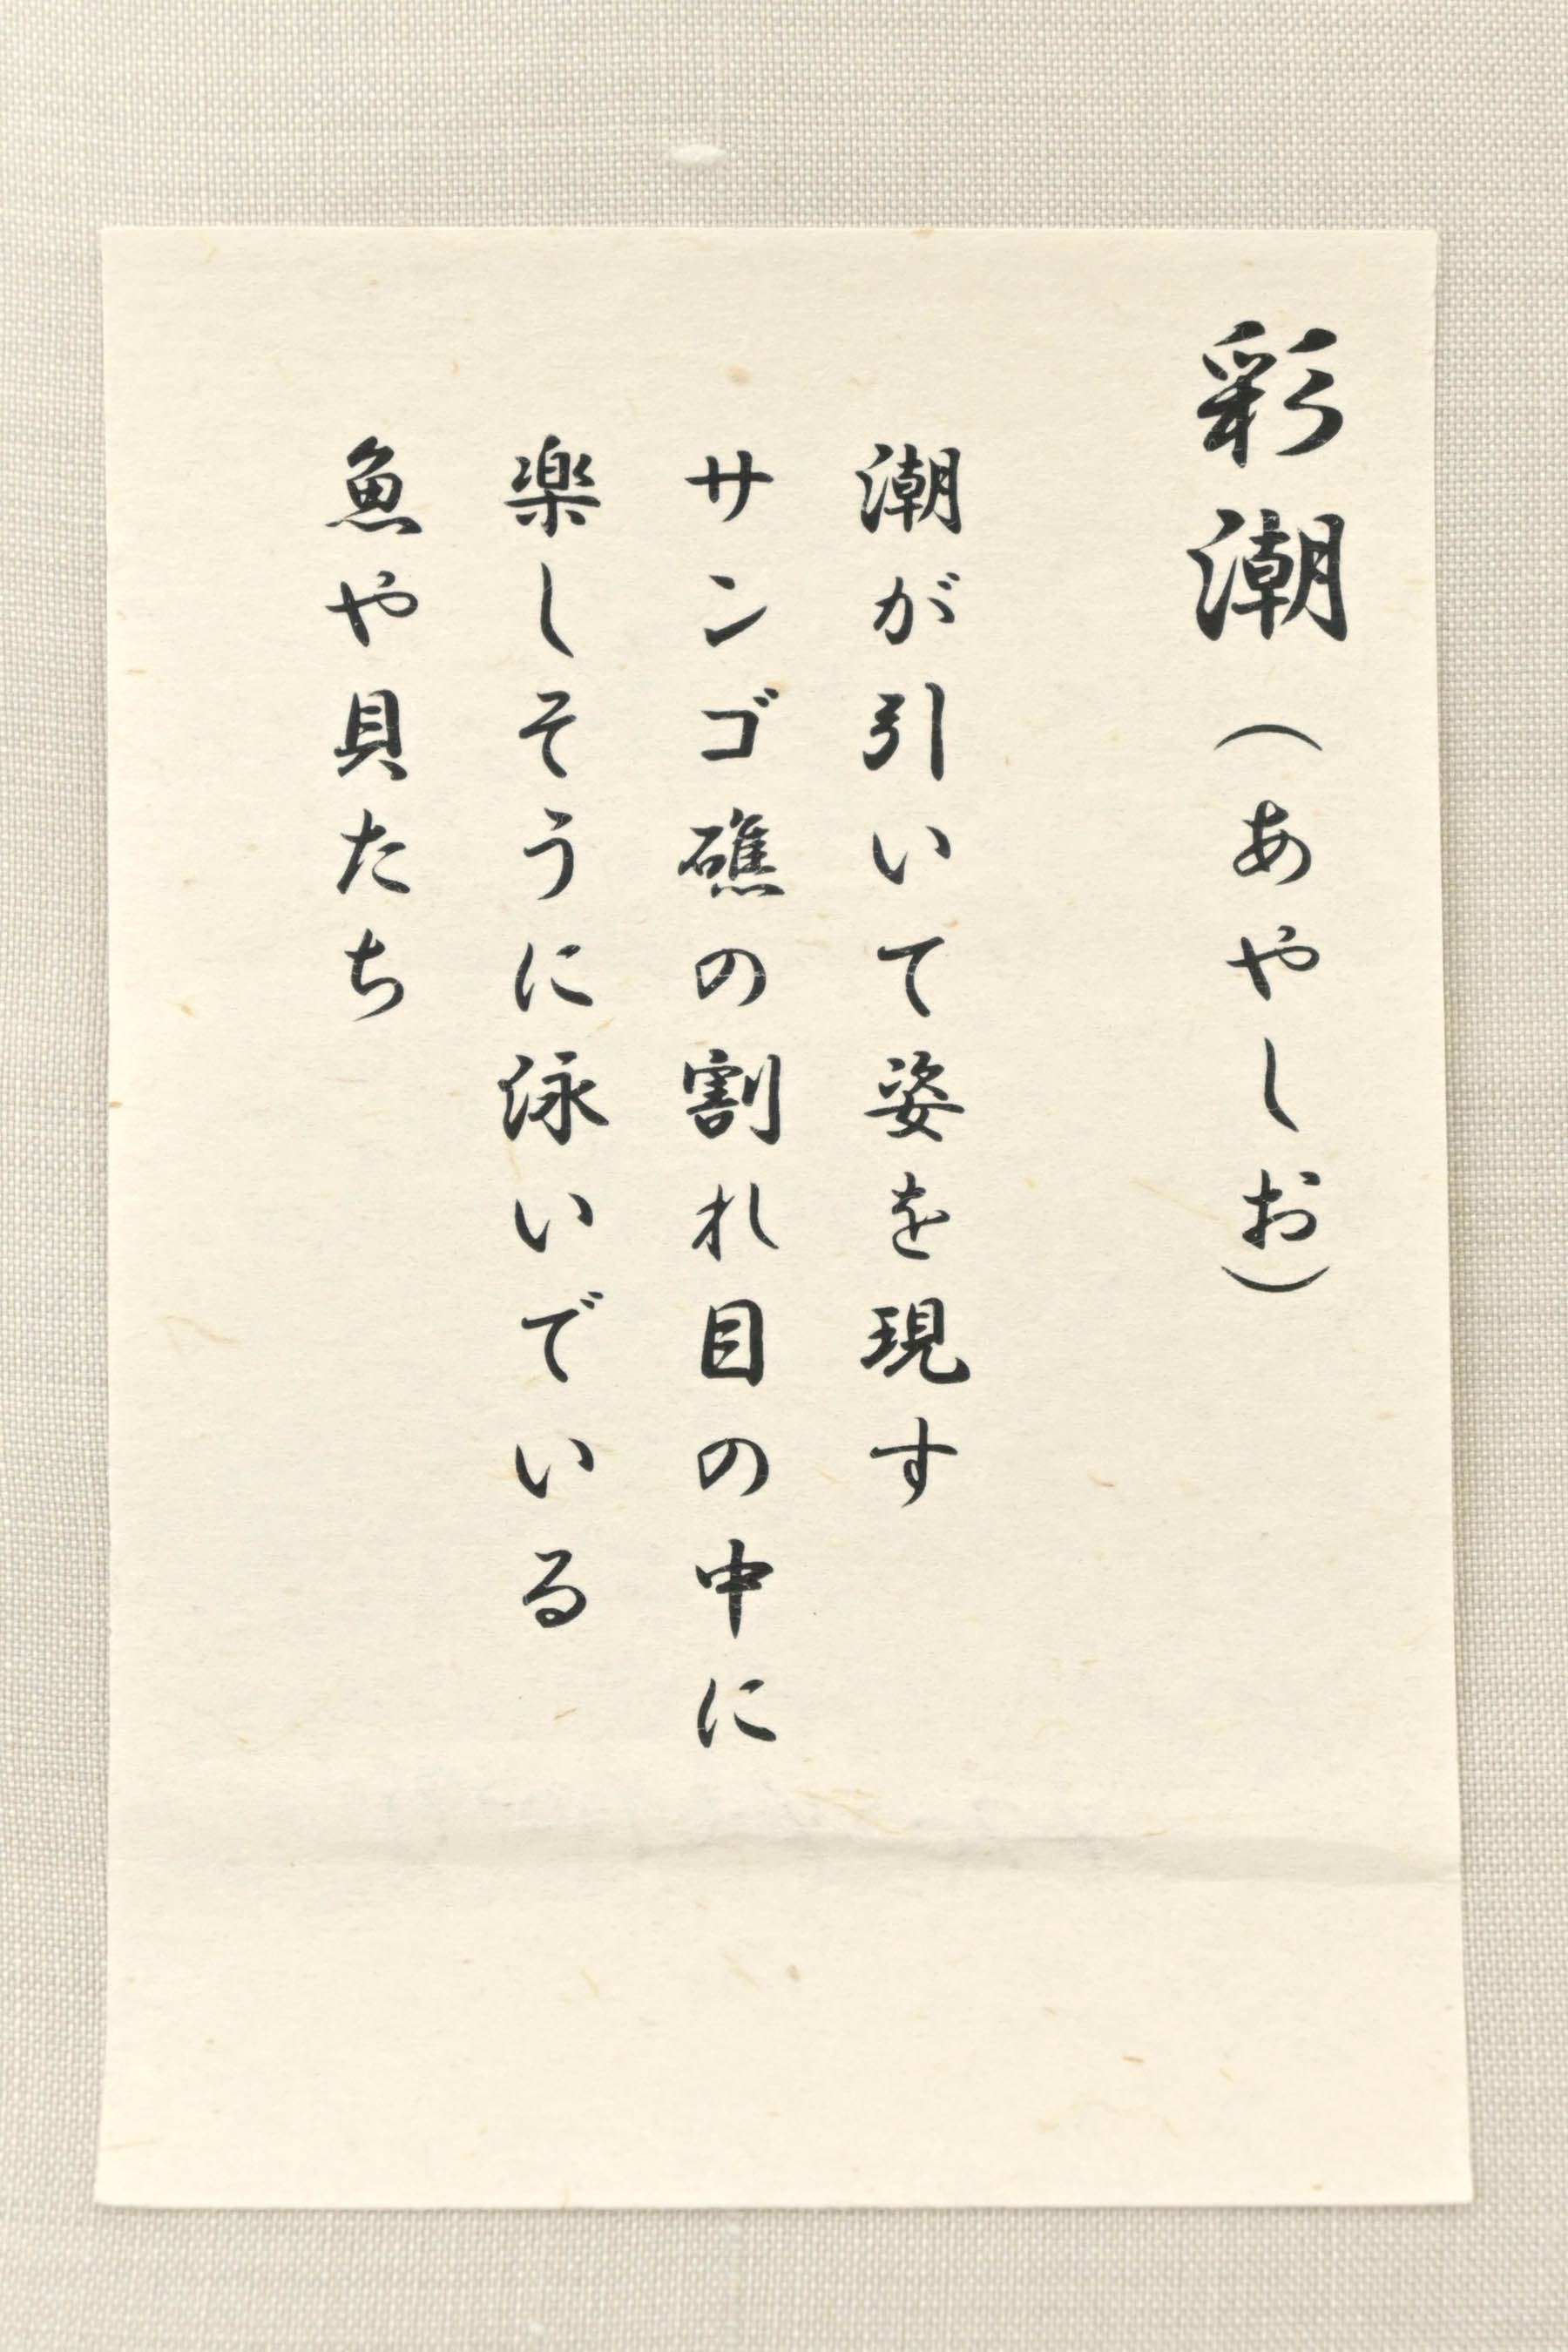 彩潮（あやしお）
潮が引いて姿を現す
サンゴ礁の割れ目の中に
楽しそうに泳いでいる
魚や貝たち